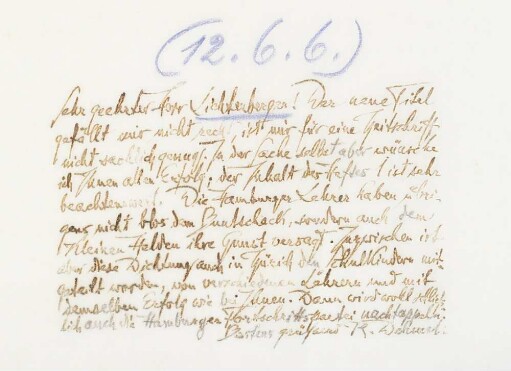 (12.6.6.)
Sehr geehrter Herr Lichtenberger! Der neue Titel
gefällt mir nicht recht, ist mir für eine Zeitschrift
nicht sachlich genug. In der Sache selbst aber wünsche
ich Ihnen allen Erfolg; der Inhalt des Heftes 1 ist sehr
beachtenswert. Die Hamburger Lehrer haben übri-
gens nicht blos dem Buntscheck, sondern auch dem
Kleinen Helden ihre Gunst versagt. Inzwischen ist
aber diese Dichtung auch in Zürich den Schulkindern mit-
geteilt worden, von verschiedenen Lehrern und mit
demselben Erfolg wie bei Ihnen. Dann wird wohl schließ-
lich auch die Hamburger Fortschrittspartei nachtappeln.
Bestens grüssend R. Dehmel.